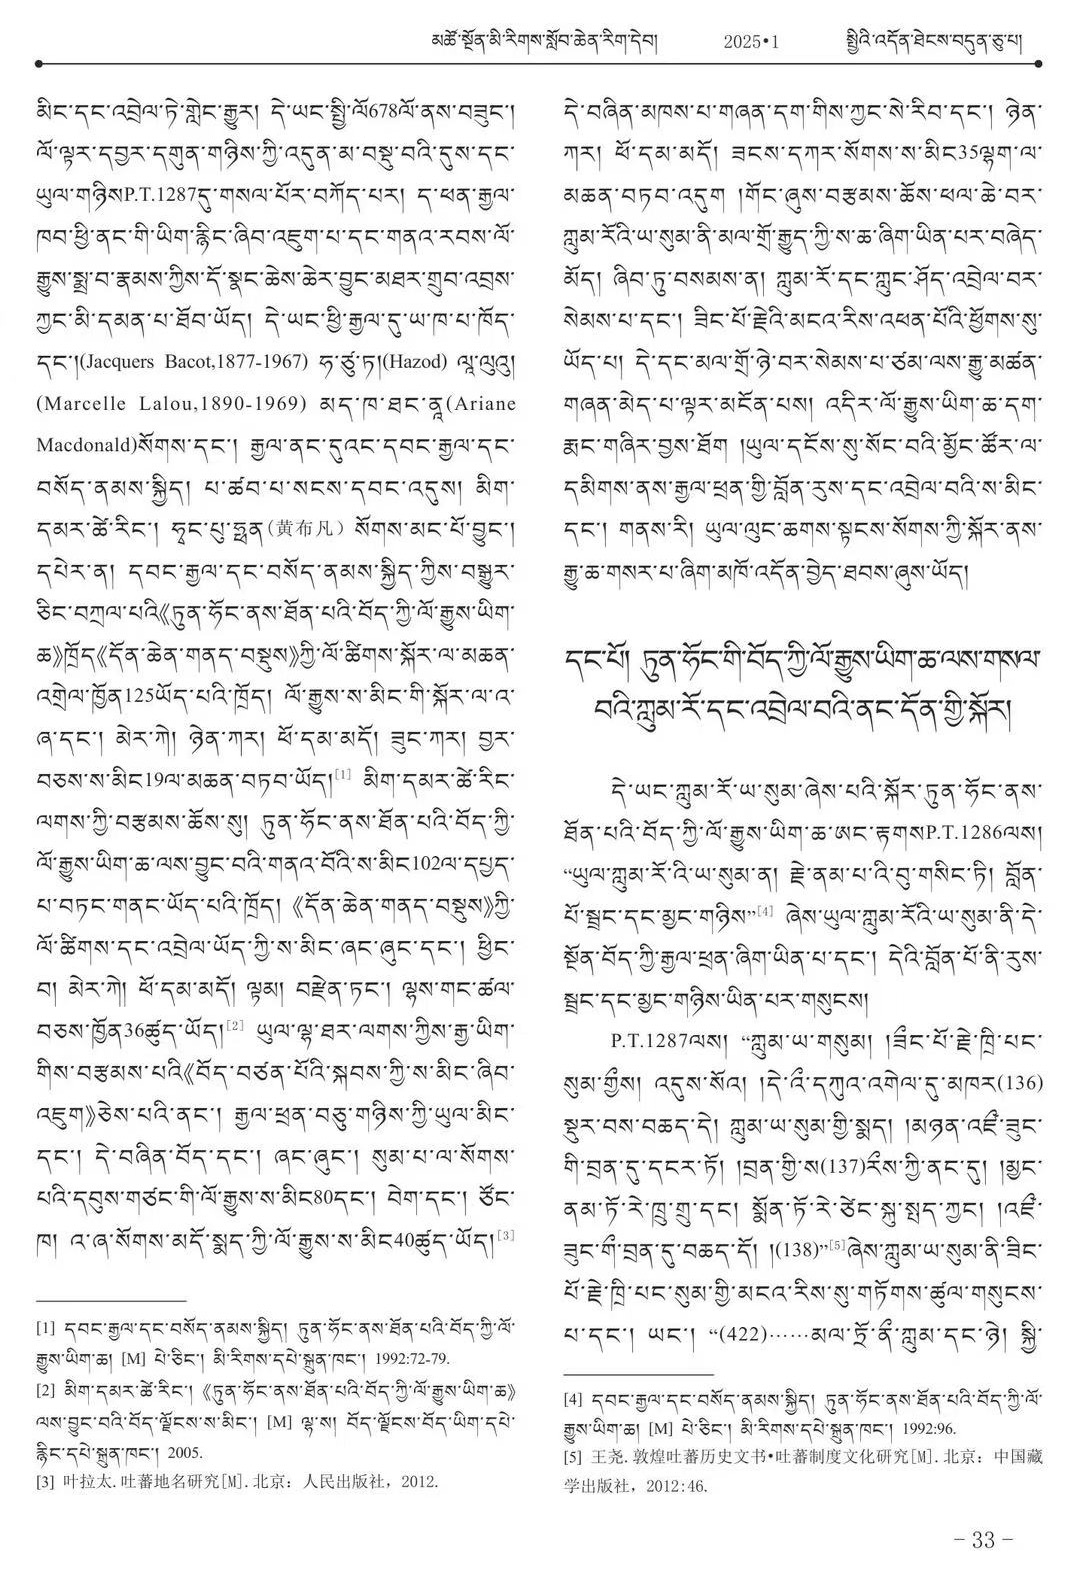 མཚོ་སྔོན་མི་རིགས་སློབ་ཆེན་རིག་དེབ། 2025•1 སྤྱིའི་འདོན་ཐེངས་བདུན་ཅུ་པ།
མིང་དང་འབྲེལ་ཏེ་གླེང་རྒྱུར། དེ་ཡང་སྤྱི་ལོ678ལོ་ནས་བཟུང་།
ལོ་ལྟར་དབྱར་དགུན་གཉིས་ཀྱི་འདུན་མ་བསྡུ་བའི་དུས་དང་
ཡུལ་གཉིསP.T.1287དུ་གསལ་པོར་བཀོད་པར། ད་ཕན་རྒྱལ་
ཁབ་ཕྱི་ནང་གི་ཡིག་རྙིང་ཞིབ་འཇུག་པ་དང་གནའ་རབས་ལོ་
རྒྱུས་སྨྲ་བ་རྣམས་ཀྱིས་དོ་སྣང་ཆེས་ཆེར་བྱུང་མཐར་གྲུབ་འབྲས་
ཀྱང་མི་དམན་པ་ཐོབ་ཡོད། དེ་ཡང་ཕྱི་རྒྱལ་དུ་ཡ་ཁ་པ་ཁོད་
དང་།(Jacquers Bacot,1877-1967) ཧ་ཙུ་ཏ།(Hazod) ལཱ་ལུའུ།
(Marcelle Lalou,1890-1969) མད་ཁ་ཐང་ནཱ(Ariane
Macdonald)སོགས་དང་། རྒྱལ་ནང་དུའང་དབང་རྒྱལ་དང་
བསོད་ནམས་སྐྱིད། པ་ཚབ་པ་སངས་དབང་འདུས། མིག་
དམར་ཚེ་རིང་། ཧྭང་པུ་ཧྥན(黄布凡) སོགས་མང་པོ་བྱུང་།
དཔེར་ན། དབང་རྒྱལ་དང་བསོད་ནམས་སྐྱིད་ཀྱིས་བསྒྱུར་
ཅིང་བཀྲལ་པའི《ཏུན་ཧོང་ནས་ཐོན་པའི་བོད་ཀྱི་ལོ་རྒྱུས་ཡིག་
ཆ》ཁྲོད《དོན་ཆེན་གནད་བསྡུས》ཀྱི་ལོ་ཚིགས་སྐོར་ལ་མཆན་
འགྲེལ་ཁྱོན125ཡོད་པའི་ཁྲོད། ལོ་རྒྱུས་ས་མིང་གི་སྐོར་ལ་འ་
ཞ་དང་། མེར་ཀེ། ཉེན་ཀར། ཕོ་དམ་མདོ། ཟུང་ཀར། བྱར་
བཅས་ས་མིང19ལ་མཆན་བཏབ་ཡོད།[1] མིག་དམར་ཚེ་རིང་
ལགས་ཀྱི་བརྩམས་ཆོས་སུ། ཏུན་ཧོང་ནས་ཐོན་པའི་བོད་ཀྱི་
ལོ་རྒྱུས་ཡིག་ཆ་ལས་བྱུང་བའི་གནའ་བོའི་ས་མིང102ལ་དཔྱད་
པ་བཏང་གནང་ཡོད་པའི་ཁྲོད། 《དོན་ཆེན་གནད་བསྡུས》ཀྱི་
ལོ་ཚིགས་དང་འབྲེལ་ཡོད་ཀྱི་ས་མིང་ཞང་ཞུང་དང་། ཕྱིང་
བ། མེར་ཀེ། ཕོ་དམ་མདོ། ལྟམ། བརྫེན་ཏང་། ལྷས་གང་ཚལ་
བཅས་ཁྱོན36ཚུད་ཡོད།[2] ཡུལ་ལྷ་ཐར་ལགས་ཀྱིས་རྒྱ་ཡིག་
གིས་བརྩམས་པའི《བོད་བཙན་པོའི་སྐབས་ཀྱི་ས་མིང་ཞིབ་
འཇུག》ཅེས་པའི་ནང་། རྒྱལ་ཕྲན་བཅུ་གཉིས་ཀྱི་ཡུལ་མིང་
དང་། དེ་བཞིན་བོད་དང་། ཞང་ཞུང་། སུམ་པ་ལ་སོགས་
པའི་དབུས་གཙང་གི་ལོ་རྒྱུས་ས་མིང80དང་། བེག་དང་། ཙོང་
ཁ། འ་ཞ་སོགས་མདོ་སྨད་ཀྱི་ལོ་རྒྱུས་ས་མིང40ཚུད་ཡོད།[3]
[1] དབང་རྒྱལ་དང་བསོད་ནམས་སྐྱིད། ཏུན་ཧོང་ནས་ཐོན་པའི་བོད་ཀྱི་ལོ་
རྒྱུས་ཡིག་ཆ། [M] པེ་ཅིང་། མི་རིགས་དཔེ་སྐྲུན་ཁང་། 1992:72-79.
[2] མིག་དམར་ཚེ་རིང་།《ཏུན་ཧོང་ནས་ཐོན་པའི་བོད་ཀྱི་ལོ་རྒྱུས་ཡིག་ཆ》
ལས་བྱུང་བའི་བོད་ལྗོངས་ས་མིང་། [M] ལྷ་ས། བོད་ལྗོངས་བོད་ཡིག་དཔེ་
རྙིང་དཔེ་སྐྲུན་ཁང་། 2005.
[3] 叶拉太.吐蕃地名研究[M].北京：人民出版社，2012.
དེ་བཞིན་མཁས་པ་གཞན་དག་གིས་ཀྱང་སེ་རིབ་དང་། ཉེན་
ཀར། ཕོ་དམ་མདོ། ཟངས་དཀར་སོགས་ས་མིང35ལྷག་ལ་
མཆན་བཏབ་འདུག །གོང་ཞུས་བརྩམས་ཆོས་ཕལ་ཆེ་བར་
ཀླུམ་རོའི་ཡ་སུམ་ནི་མལ་གྲོ་རྒྱུད་ཀྱི་ས་ཆ་ཞིག་ཡིན་པར་བཞེད་
མོད། ཞིབ་ཏུ་བསམས་ན། ཀླུམ་རོ་དང་ཀླུང་ཤོད་འབྲེལ་བར་
སེམས་པ་དང་། ཟིང་པོ་རྗེའི་མངའ་རིས་འཕན་པོའི་ཕྱོགས་སུ་
ཡོད་པ། དེ་དང་མལ་གྲོ་ཉེ་བར་སེམས་པ་ཙམ་ལས་རྒྱུ་མཚན་
གཞན་མེད་པ་ལྟར་མངོན་པས། འདིར་ལོ་རྒྱུས་ཡིག་ཆ་དག་
རྨང་གཞིར་བྱས་ཐོག །ཡུལ་དངོས་སུ་སོང་བའི་མྱོང་ཚོར་ལ་
དམིགས་ནས་རྒྱལ་ཕྲན་གྱི་བློན་རུས་དང་འབྲེལ་བའི་ས་མིང་
དང་། གནས་རི། ཡུལ་ལུང་ཆགས་སྟངས་སོགས་ཀྱི་སྐོར་ནས་
རྒྱུ་ཆ་གསར་པ་ཞིག་མཁོ་འདོན་བྱེད་ཐབས་ཞུས་ཡོད།
དང་པོ། ཏུན་ཧོང་གི་བོད་ཀྱི་ལོ་རྒྱུས་ཡིག་ཆ་ལས་གསལ་
བའི་ཀླུམ་རོ་དང་འབྲེལ་བའི་ནང་དོན་གྱི་སྐོར།
དེ་ཡང་ཀླུམ་རོ་ཡ་སུམ་ཞེས་པའི་སྐོར་ཏུན་ཧོང་ནས་
ཐོན་པའི་བོད་ཀྱི་ལོ་རྒྱུས་ཡིག་ཆ་ཨང་རྟགསP.T.1286ལས།
“ཡུལ་ཀླུམ་རོ་འི་ཡ་སུམ་ན། རྗེ་ནམ་པ་འི་བུ་གསིང་ཏི། བློན་
པོ་སྦྲང་དང་མྱང་གཉིས”[4] ཞེས་ཡུལ་ཀླུམ་རོའི་ཡ་སུམ་ནི་དེ་
སྔོན་བོད་ཀྱི་རྒྱལ་ཕྲན་ཞིག་ཡིན་པ་དང་། དེའི་བློན་པོ་ནི་རུས་
སྦྲང་དང་མྱང་གཉིས་ཡིན་པར་གསུངས།
P.T.1287ལས། “ཀླུམ་ཡ་གསུམ། །ཟིང་པོ་རྗེ་ཁྲི་པང་
སུམ་གྱིས། འདུས་སོའ། །དེ་འི་དཀུའ་འགེལ་དུ་མཁར(136)
སྡུར་བས་བཆད་དེ། ཀླུམ་ཡ་སུམ་གྱི་སྨད། །མཉན་འཛི་ཟུང་
གི་བྲན་དུ་དངར་ཏོ། །བྲན་གྱི་ས(137)རིས་ཀྱི་ནང་དུ། །མྱང་
ནམ་ཏོ་རེ་ཁྲུ་གྲུ་དང། སྨོན་ཏོ་རེ་ཙེང་སྐུ་སྤད་ཀྱང། །འཛི་
ཟུང་གི་བྲན་དུ་བཆད་དོ། །(138)”[5]ཞེས་ཀླུམ་ཡ་སུམ་ནི་ཟིང་
པོ་རྗེ་ཁྲི་པང་སུམ་གྱི་མངའ་རིས་སུ་གཏོགས་ཚུལ་གསུངས་
པ་དང་། ཡང་། “(422)……མལ་ཏྲོ་ནི་ཀླུམ་དང་ཉེ། སྐྱི་
[4] དབང་རྒྱལ་དང་བསོད་ནམས་སྐྱིད། ཏུན་ཧོང་ནས་ཐོན་པའི་བོད་ཀྱི་ལོ་
རྒྱུས་ཡིག་ཆ། [M] པེ་ཅིང་། མི་རིགས་དཔེ་སྐྲུན་ཁང་། 1992:96.
[5] 王尧.敦煌吐蕃历史文书•吐蕃制度文化研究[M].北京：中国藏
学出版社，2012:46.
– 33 –